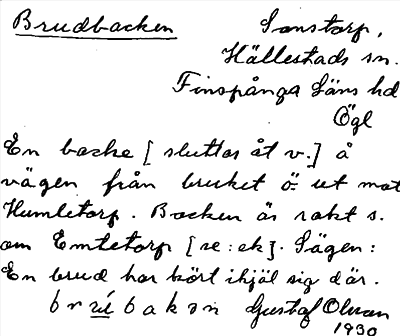 Brudbacken
Sonstorp,
Hällestads sn.
Finspånga läns hd
Ögl
En backe [sluttar åt v.] å
vägen från bruket ö. ut mot
Humletorp. Backen är rakt s.
om Emtetorp [se: ek]. Sägen:
En brud har kört ihjäl sig där.
brúbakan Gustaf Olsson
1930